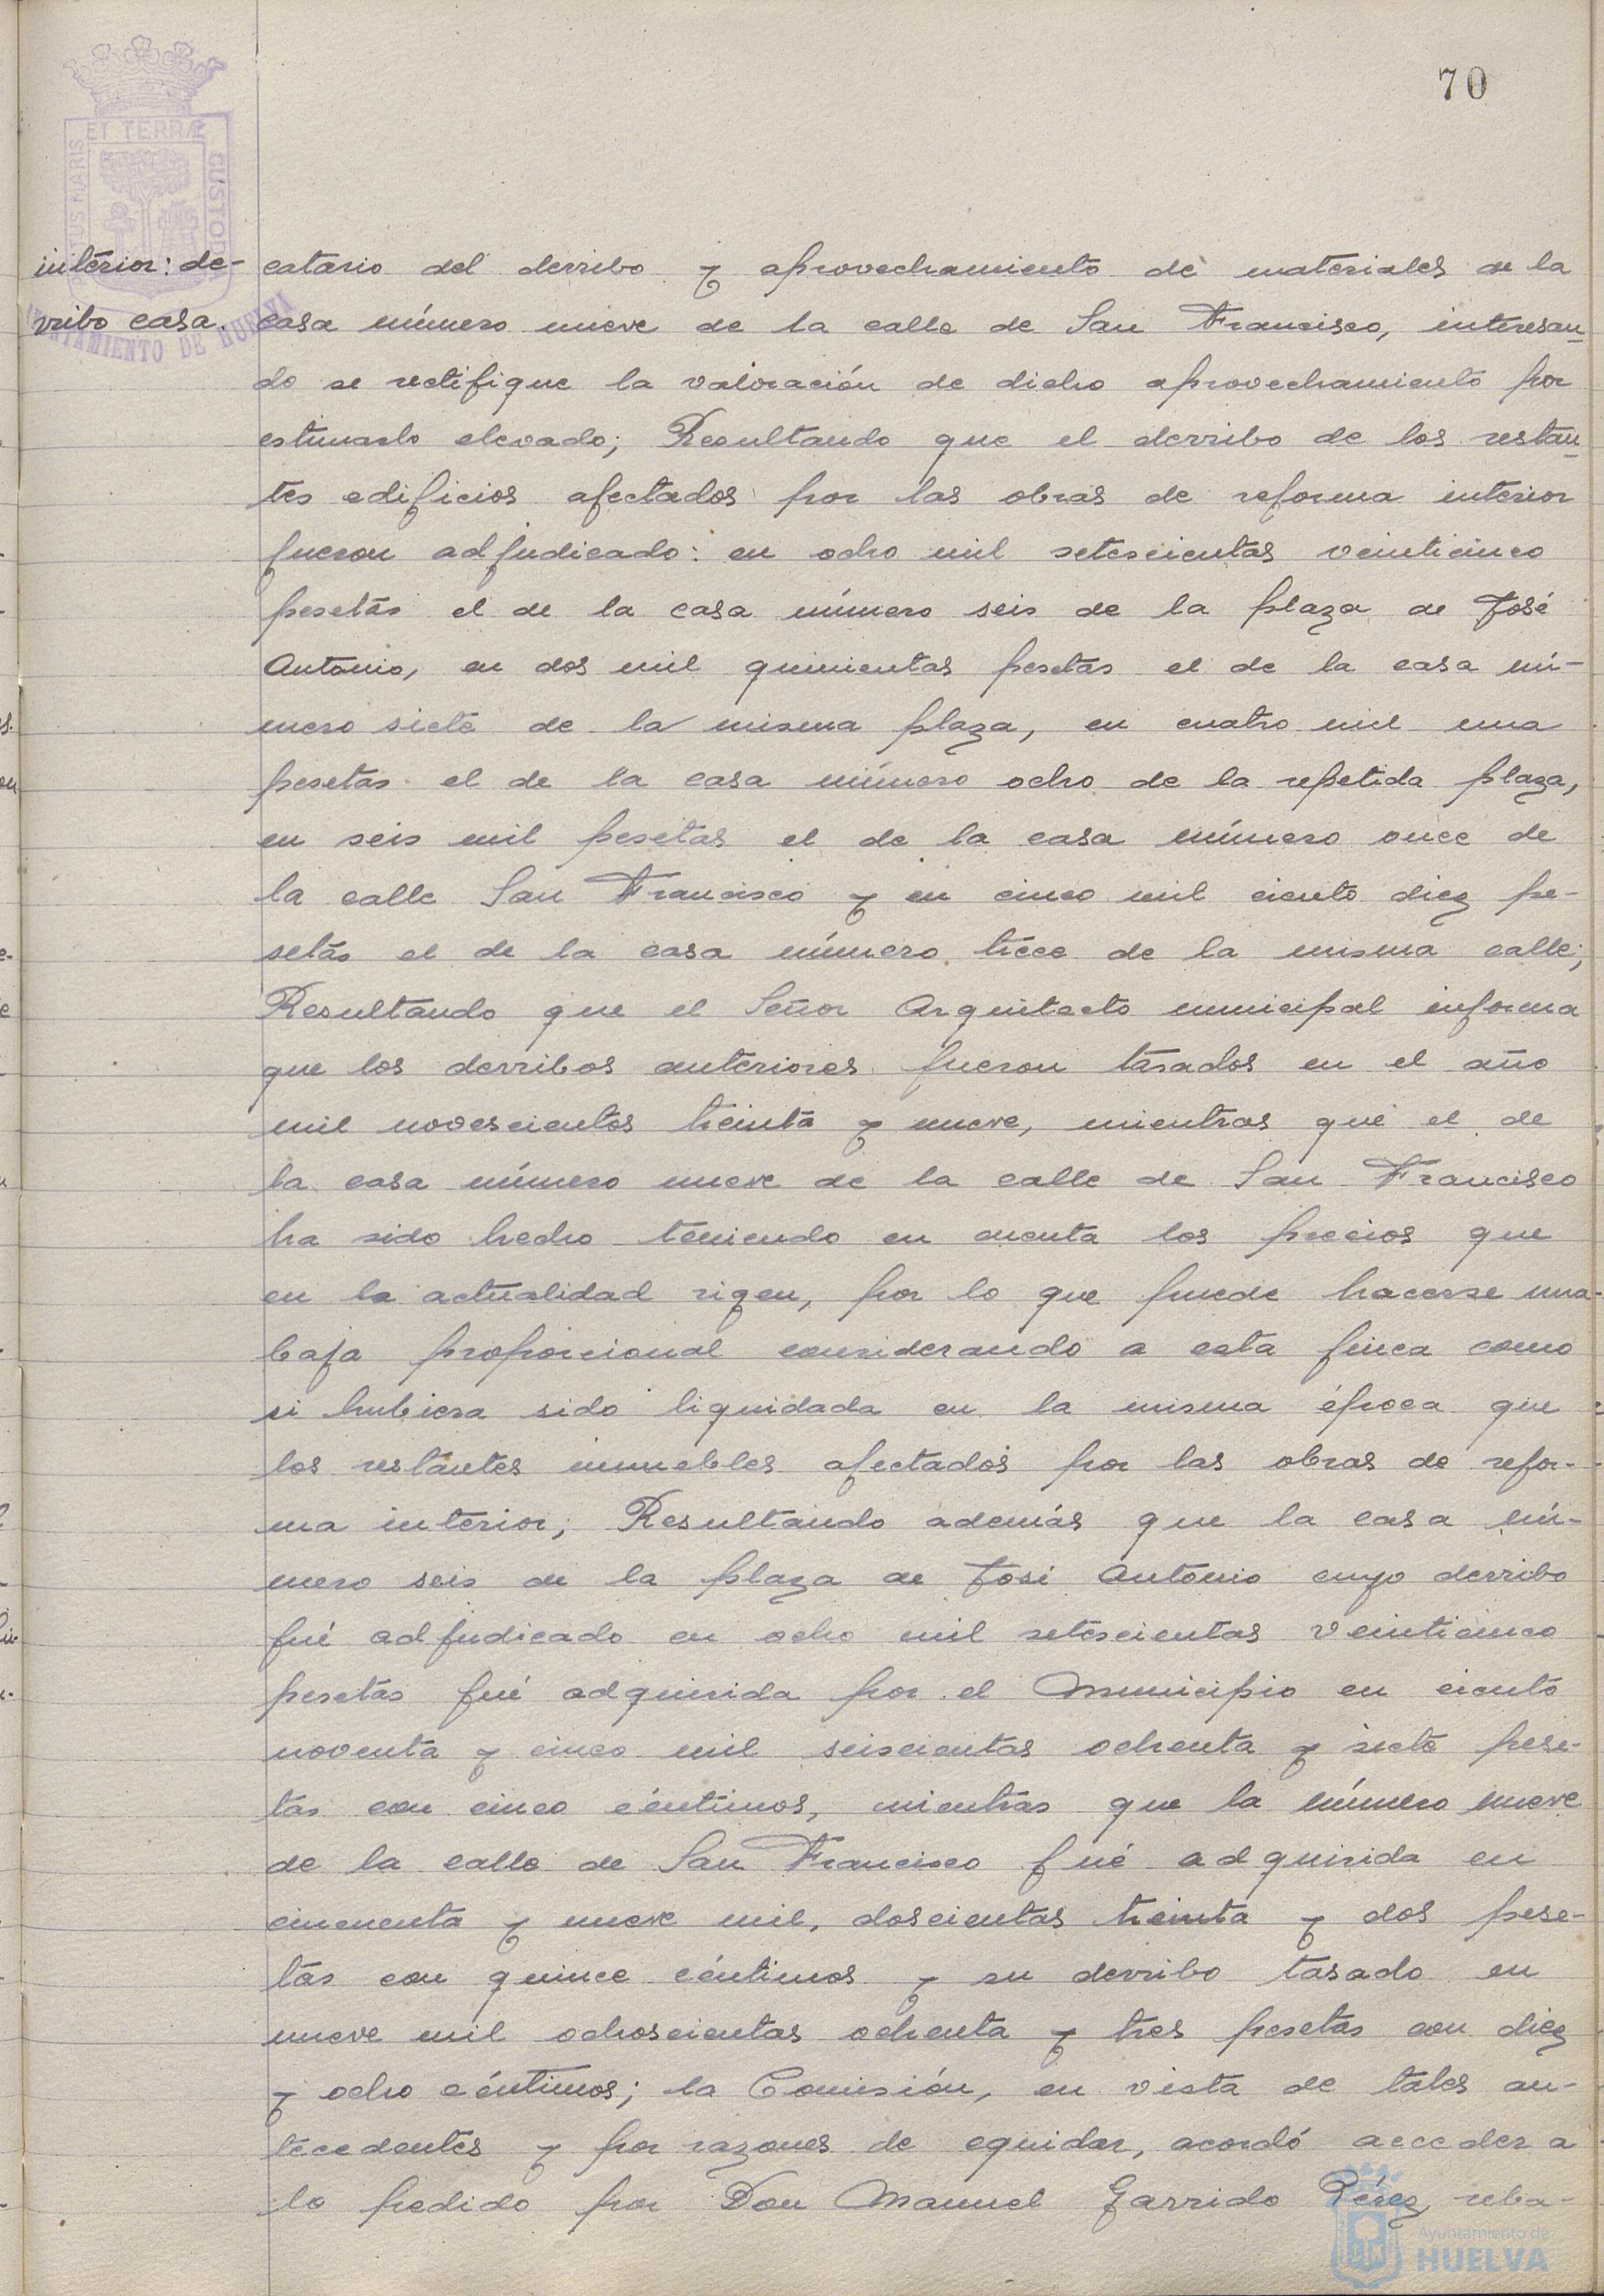 70
ET TERRÆ
CUSTODI
interior: de-
rribo casa.
catario del derribo y aprovechamiento de materiales de la
casa número nueve de la calle de San Francisco, interesan
do se rectifique la valoración de dicho aprovechamiento por
estimarlo elevado; Resultando que el derribo de los restan
tes edificios afectados por las obras de reforma interior
fueron adjudicado: en ocho mil setescientas veinticinco
pesetas el de la casa número seis de la plaza de José
Antonio, en dos mil quinientas pesetas el de la casa nú-
mero siete de la misma plaza, en cuatro mil una
pesetas el de la casa número ocho de la repetida plaza,
en seis mil pesetas el de la casa número once de
la calle San Francisco y en cinco mil ciento diez pe-
setas el de la casa número trece de la misma calle;
Resultando que el Señor Arquitecto municipal informa
que los derribos anteriores fueron tasados en el año
mil novescientos treinta y nueve, mientras que el de
la casa número nueve de la calle de San Francisco
ha sido hecho teniendo en cuenta los precios que
en la actualidad rigen, por lo que puede hacerse una
baja proporcional considerando a esta finca como
si hubiera sido liquidada en la misma época que
los restantes inmuebles afectados por las obras de refor-
ma interior; Resultando además que la casa nú-
mero seis de la plaza de José Antonio cuyo derribo
fué adjudicado en ocho mil setescientas veinticinco
pesetas fué adquirida por el Municipio en ciento
noventa y cinco mil seiscientas ochenta y siete pese-
tas con cinco céntimos, mientras que la número nueve
de la calle de San Francisco fué adquirida en
cincuenta y nueve mil, doscientas treinta y dos pese-
tas con quince céntimos y su derribo tasado en
nueve mil ochoscientas ochenta y tres pesetas con diez
y ocho céntimos; la Comisión, en vista de tales an-
tecedentes y por razones de equidar, acordó acceder a
lo pedido por Don Manuel Garrido Pérez, reba-
Ayuntamiento de
HUELVA